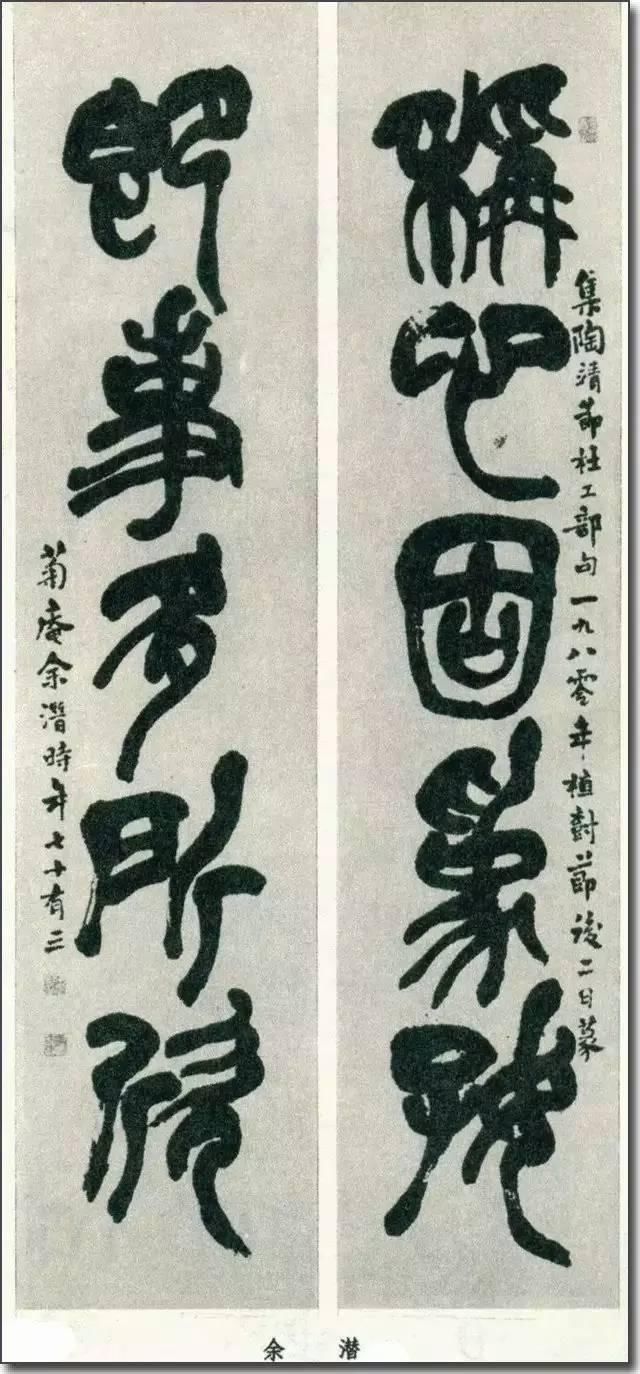 稱心固為好
集陶靖節杜工部句一九八零年植樹節後二日篆
即事多所欣
菊庵余潛時年七十有三
余潛